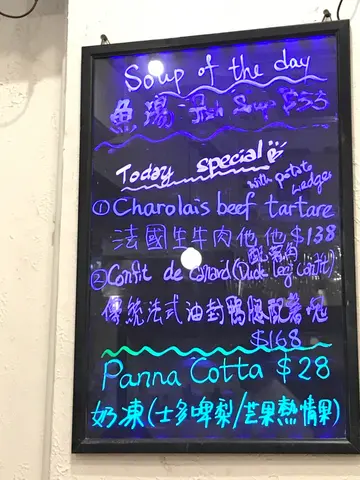 Soup of the day
魚湯 Fish Soup $53
Today special
with potato wedges
① Charolais beef tartare
法國生牛肉他他 $138
配薯角
② Confit de Canard (Duck leg confit)
傳統法式油封鴨腿配薯塊
$168
Panna Cotta $28
奶凍(士多啤梨/芒果熱情果)